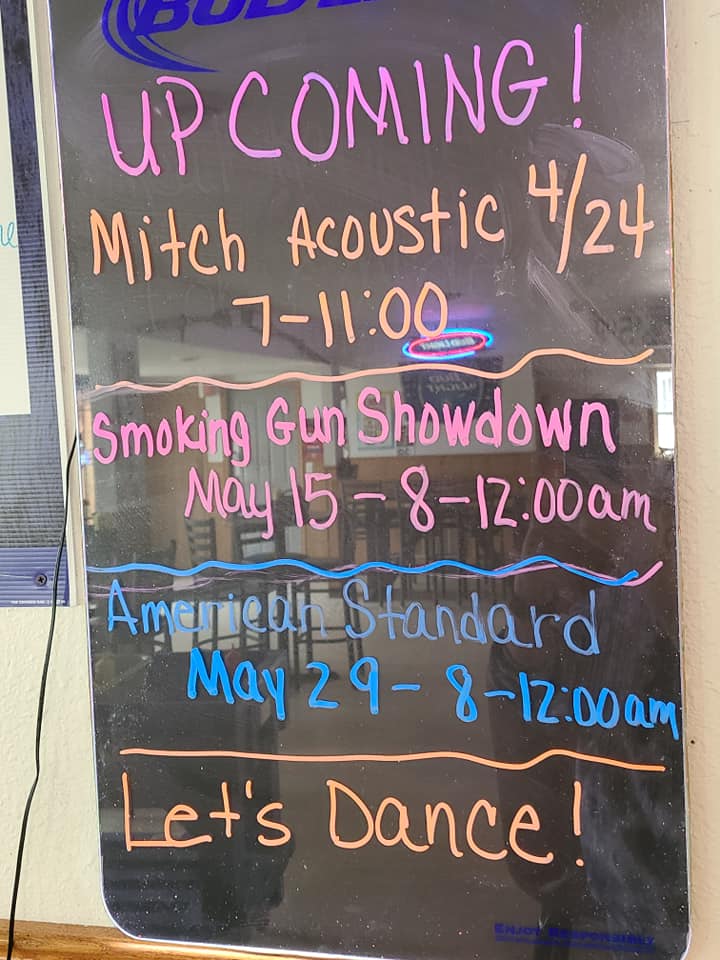 UPCOMING!
Mitch Acoustic 4/24
7-11:00
Smoking Gun Showdown
May 15 - 8-12:00am
American Standard
May 29 - 8-12:00am
Let's Dance!
ENJOY RESPONSIBLY